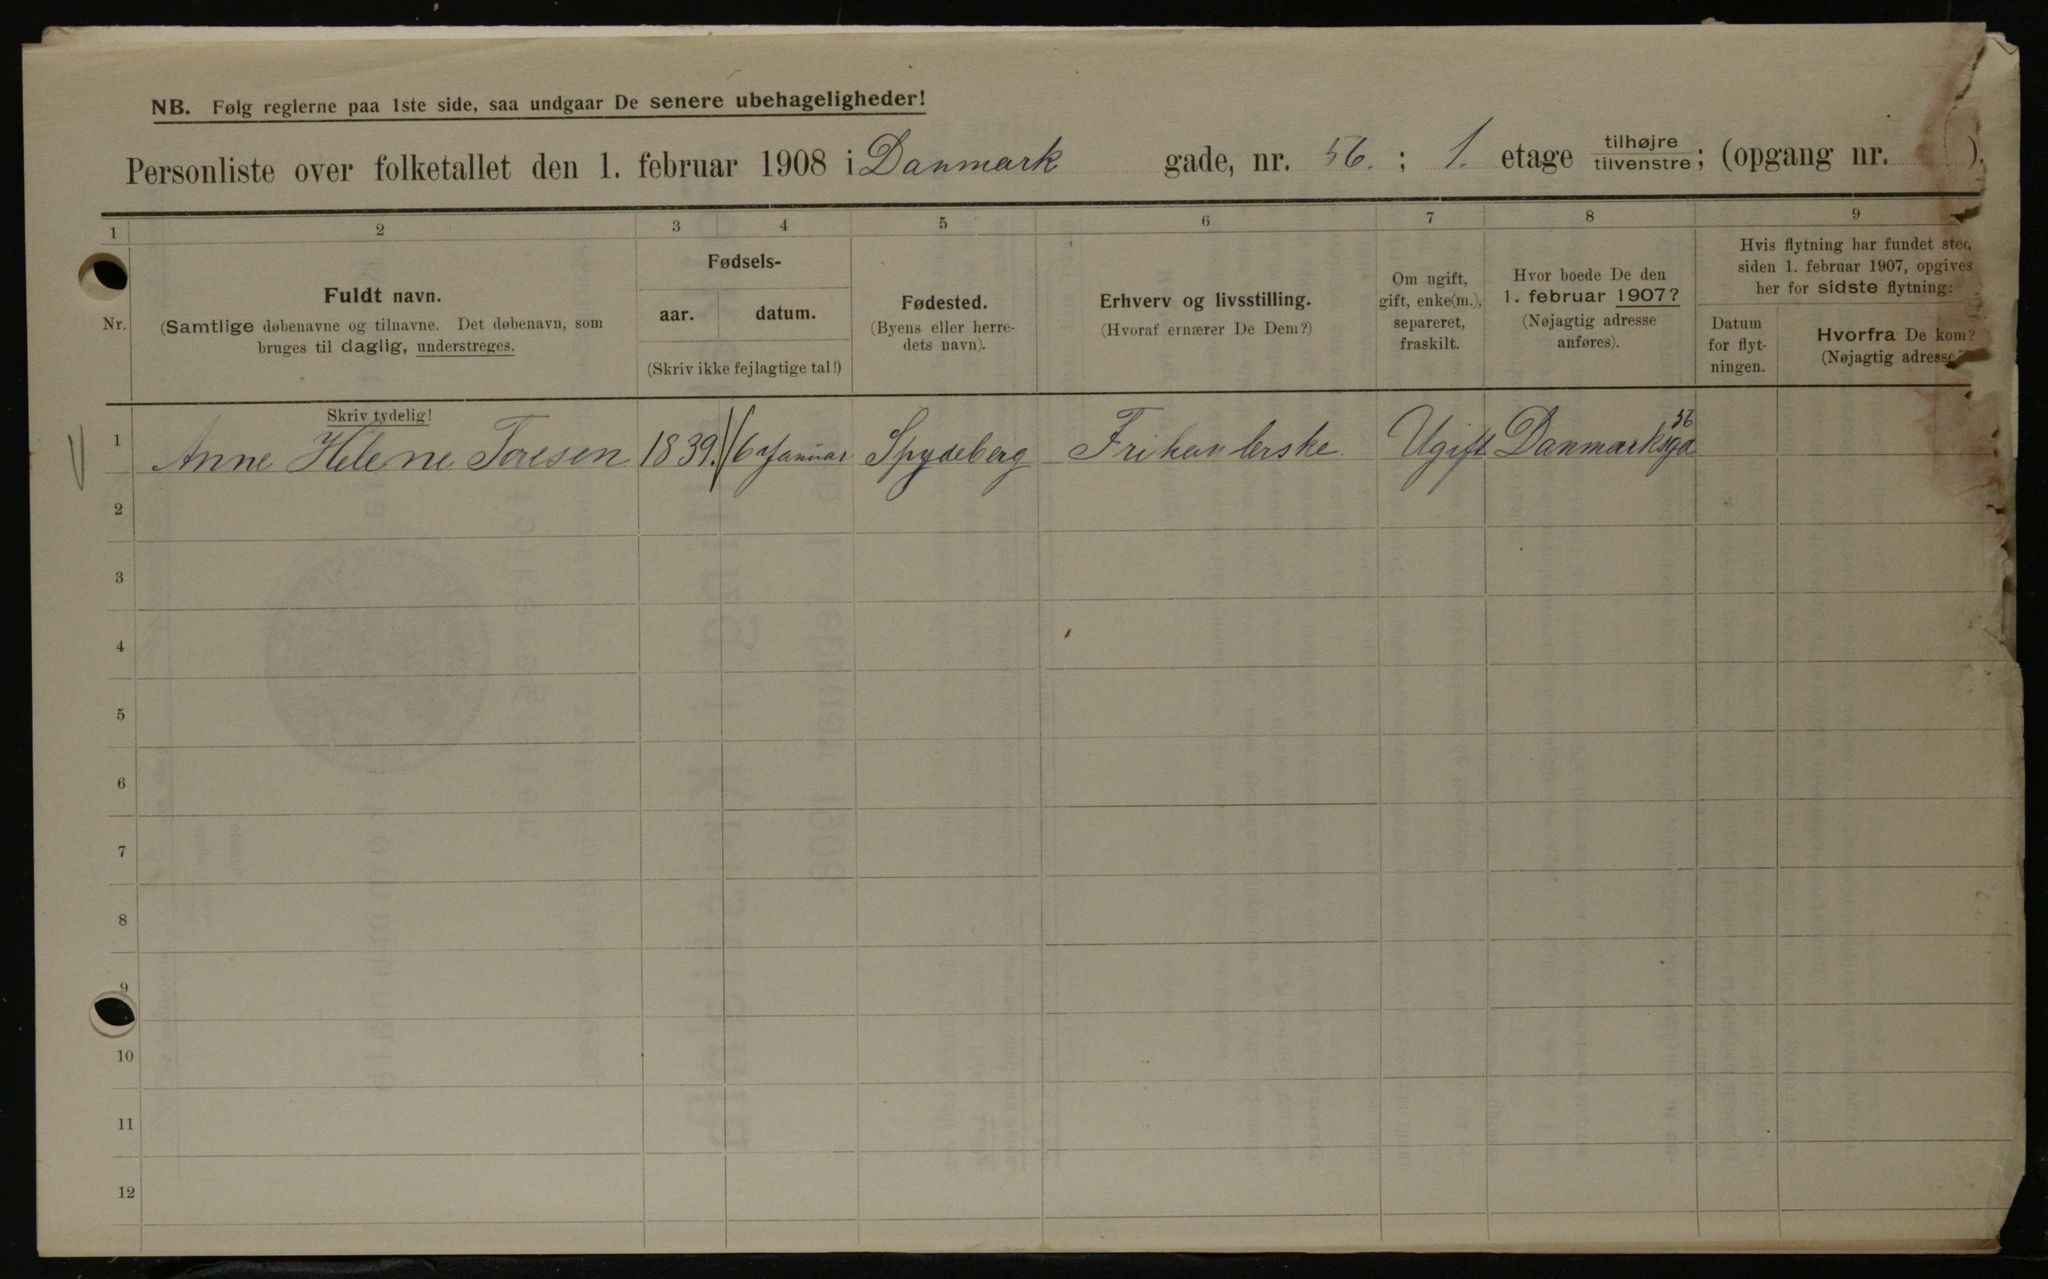 NB. Følg reglerne paa 1ste side, saa undgaar De senere ubehageligheder!
Personliste over folketallet den 1. februar 1908 i Danmark gade, nr. 56. ; 1. etage tilhøjre tilvenstre; (opgang nr. ).
1 2 3 4 5 6 7 8 9
Nr.
Fuldt navn.
(Samtlige døbenavne og tilnavne. Det døbenavn, som
bruges til daglig, understreges.
Fødsels-
aar. datum.
(Skriv ikke fejlagtige tal!)
Fødested.
(Byens eller herre-
dets navn).
Erhverv og livsstilling.
(Hvoraf ernærer De Dem?)
Om ugift,
gift, enke(m.),
separeret,
fraskilt.
Hvor boede De den
1. februar 1907?
(Nøjagtig adresse
anføres).
Hvis flytning har fundet sted
siden 1. februar 1907, opgives
her for sidste flytning:
Datum
for flyt-
ningen.
Hvorfra De kom?
(Nøjagtig adresse
Skriv tydelig!
1 Anne Helene Toresen 1839. 16 Januar Spydeberg Frihanlerske. Ugift Danmarksga 56
2
3
4
5
6
7
8
9
10
11
12